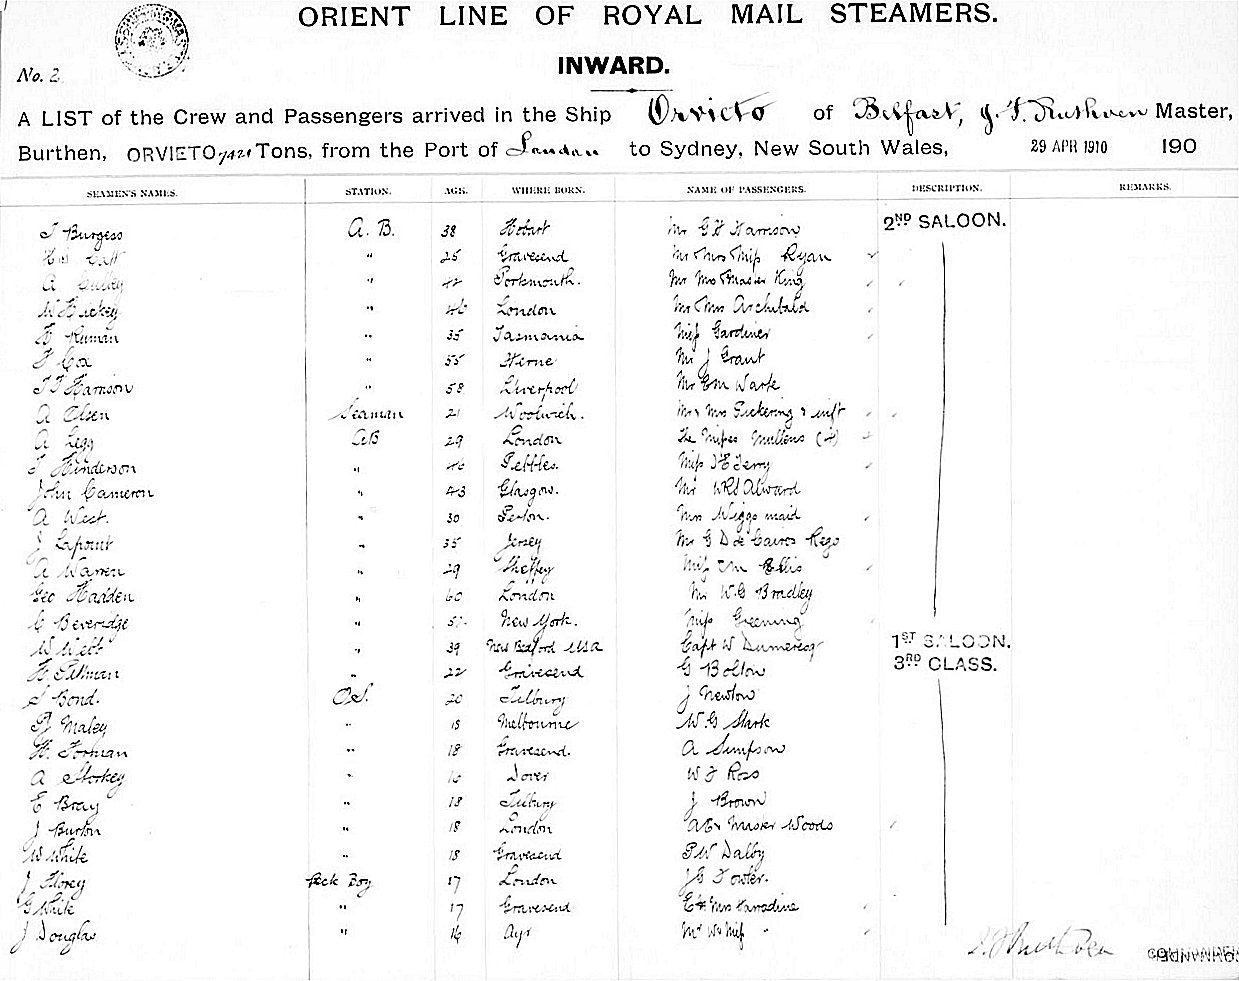 ORIENT LINE OF ROYAL MAIL STEAMERS.
No. 2
INWARD.
A LIST of the Crew and Passengers arrived in the Ship Orvieto of Belfast, J. F. Ruthven Master,
Burthen, ORVIETO Tons, from the Port of London to Sydney, New South Wales, 29 APR 1910 190
SEAMEN'S NAMES. STATION. AGE. WHERE BORN. NAME OF PASSENGERS. DESCRIPTION. REMARKS.
J Burgess A. B. 38 Hobart Mr G H Harrison 2ND SALOON.
" 25 Gravesend Mr Mrs & Miss Ryan
A " 42 Portsmouth. Mr Mrs & Master King
W Hickey " 46 London Mr & Mrs Archibald
" 35 Tasmania Miss Gardiner
F Cox " 55 Herne Mr J Grant
J T Harrison " 58 Liverpool Mr Wark
A Olsen Seaman 21 Woolwich. Mr & Mrs Pickering &
A Legg AB 29 London The Misses Mullens (4)
J Henderson " 46 Peebles. Miss Terry
John Cameron " 43 Glasgow. Mr Alward
A West. " 30 Mrs Wiggs maid
J Lapoint " 35 Jersey Mr G D de Caires Rego
A Warren " 29 Miss Ellis
Geo Hadden " 60 London Mr W. G Bradley
C Beveridge " New York. Miss Greening
W West " 39 New Bedford USA Capt W Dumeresq 1ST SALOON.
H Pitman " 22 Gravesend G Bolton 3RD CLASS.
J Bond. O.S. 20 Tilbury J Newton
Maley " 18 Melbourne W. G Stark
H. Forman " 18 Gravesend. A Simpson
A Storkey " 16 Dover W J Ross
E Bray " 18 Tilbury J Brown
J Burton " 18 London Master Woods
W White " 18 Gravesend P W Dalby
J Florey Deck Boy 17 London J G Fowler.
G White " 17 Gravesend E & Mrs Karradine
J Douglas " 16 Ayr Mr
J. F Ruthven COMMANDER